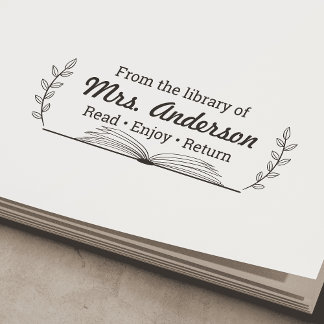 From the library of
Mrs. Anderson
Read • Enjoy • Return